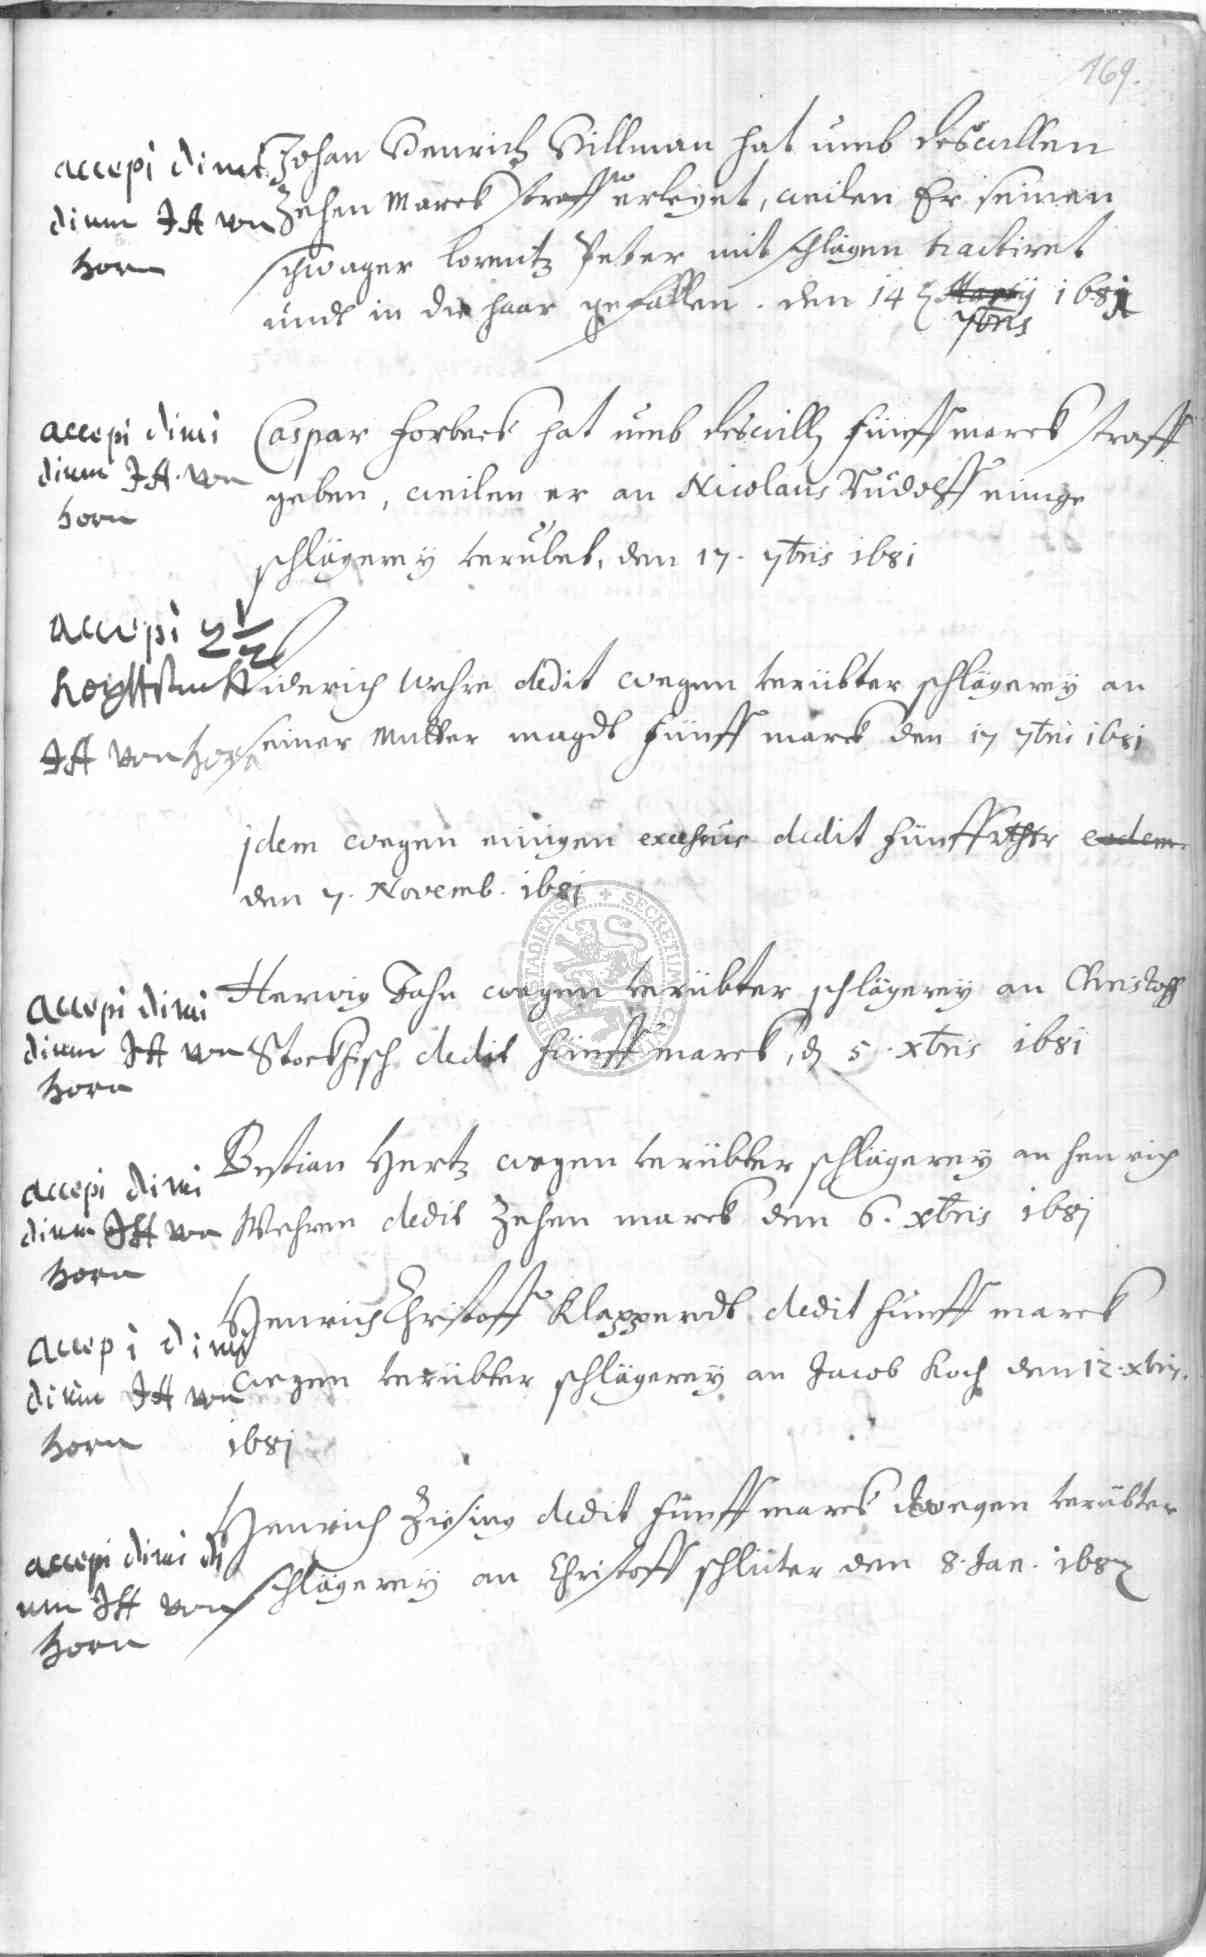 169.
accepi dimi
dium JH von
Horn
Johan Henrich Hillman hat umb deswillen
Zehen Marck straff erleget, weilen Er seinen
schwager lorentz Peter mit schlägen tractiret
undt in die haar gefallen. den 14 Martij 1681
7bris
accepi dimi
dium JH. von
Horn
Caspar forbeck hat umb deswillen fünff marck straff
geben, weilen er an Nicolaus Rudolff einige
schlägerey verübet, den 17. 7bris 1681
accepi 2 1/2
JH von Horn
Diderich Wehre dedit wegen verübter schlägerey an
seiner Mutter magdt fünff marck den 17 7bris 1681
jdem wegen einigen dedit fünff rthr eodem.
den 7. Novemb. 1681
accepi dimi
dium JH von
Horn
Herwig Jahn wegen verübter schlägerey an Christoff
Stockfisch dedit fünff marck, d 5. xbris 1681
accepi dimi
dium JH von
Horn
Bestian Hertz wegen verübter schlägerey an henrich
Wehren dedit Zehen marck den 6. xbris 1681
accepi dimi
dium JH von
Horn
Henrich Christoff Klapperodt dedit fünff marck
wegen verübter schlägerey an Jacob Koch den 12. xbris.
1681
accepi dimi di
um JH von
Horn
Henrich Zissing dedit fünff marck wegen verübter
schlägerey an Christoff schlüter den 8. Jan. 1682